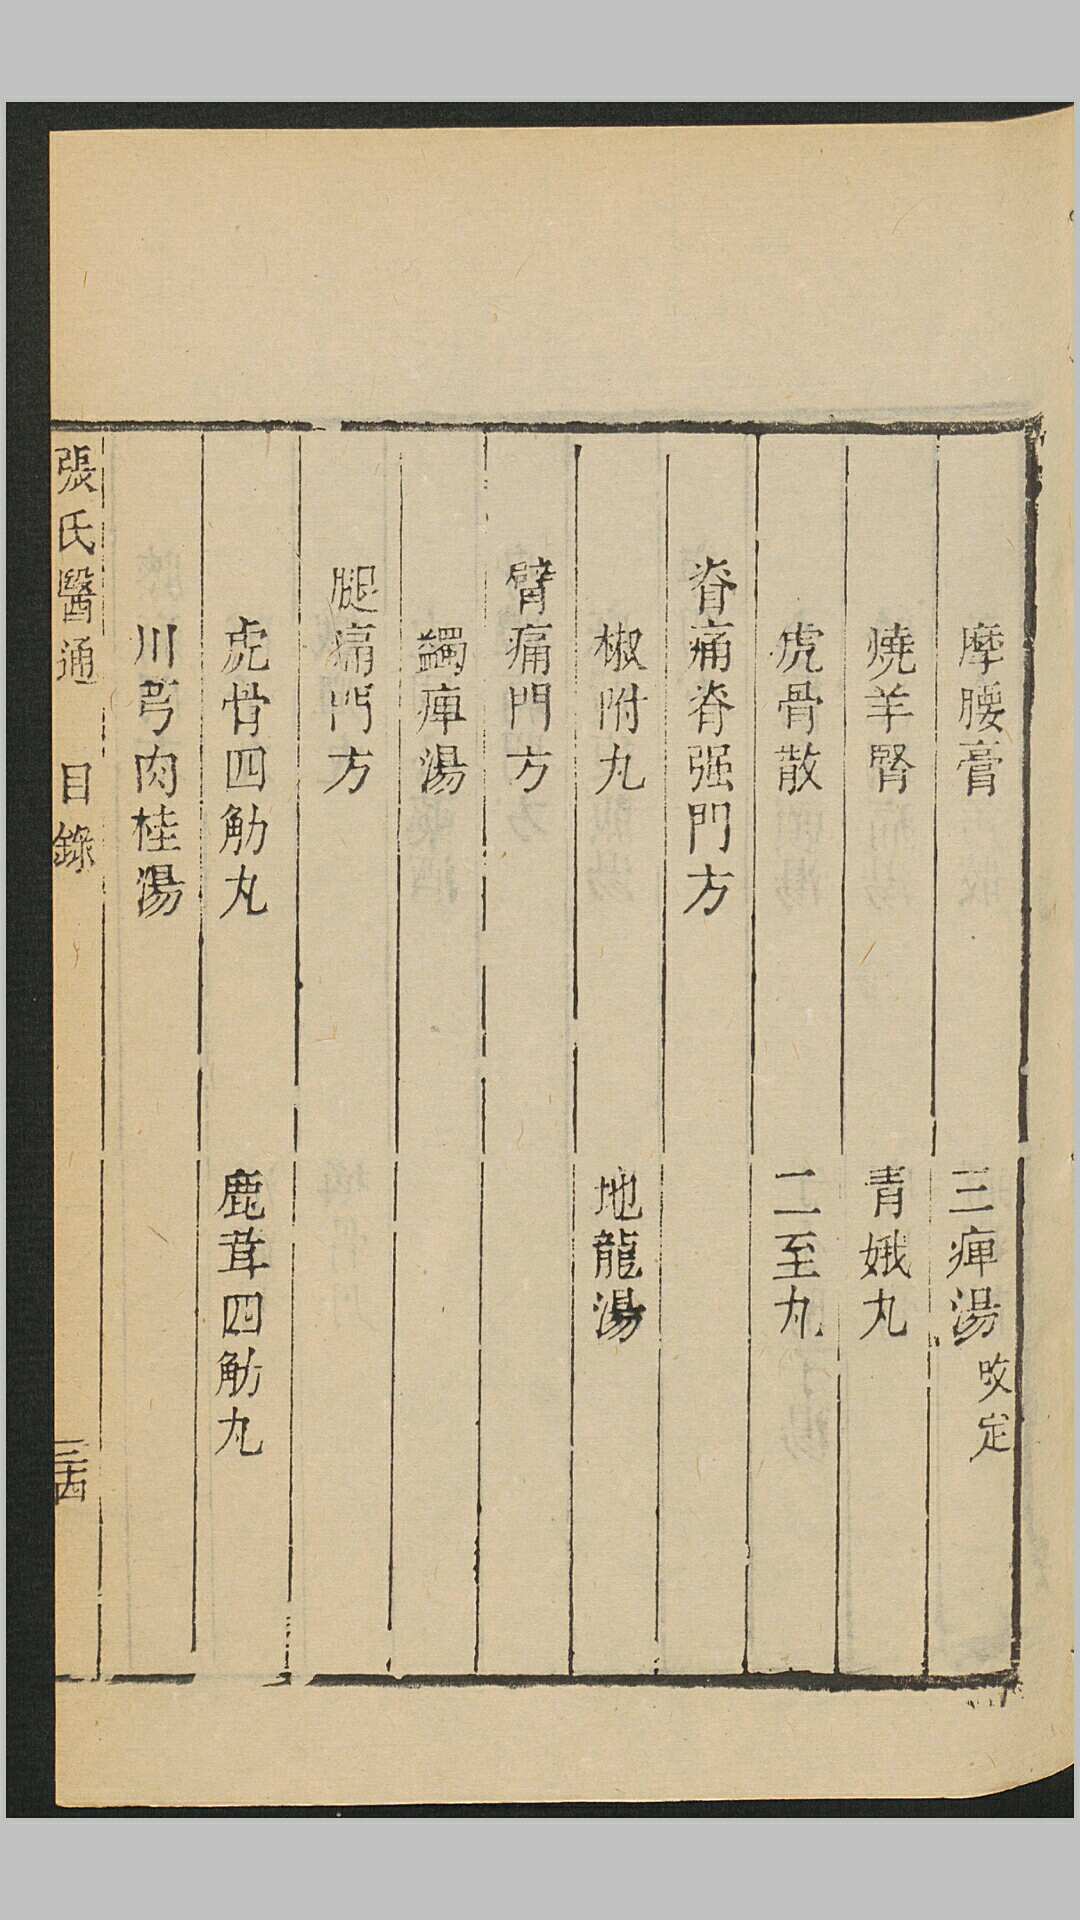 摩腰膏 三痺湯 攺定
燒羊腎 青娥丸
虎骨散 二至丸
脊痛脊强門方
椒附丸 地龍湯
臂痛門方
蠲痺湯
腿痛門方
虎骨四觔丸 鹿茸四觔丸
川芎肉桂湯
張氏醫通 目錄 三十四